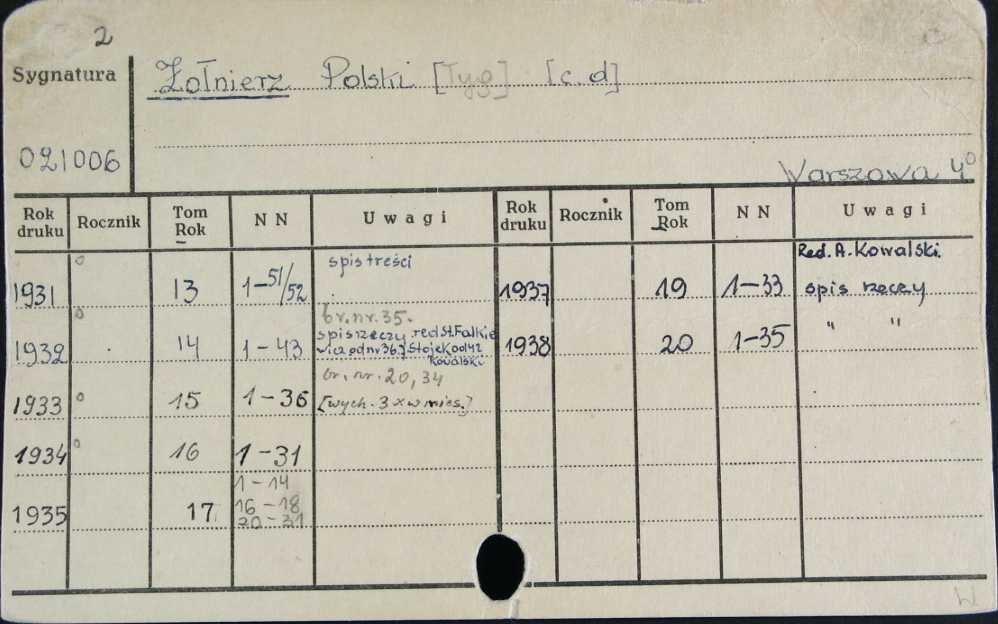 2
Sygnatura
Żołnierz Polski [Tyg] [c.d]
021006
Warszawa 4º
Rok druku Rocznik Tom Rok NN Uwagi Rok druku Rocznik Tom Rok NN Uwagi
1931 o 13 1-51/52 spis treści
1932 o 14 1-43 br. nr. 35.
spis rzeczy red St. Falkie
wicz od nr 36. J. Stojek od 42
Kowalski
1933 o 15 1-36 br. nr. 20, 34
[wych. 3 x w mies.]
1934 o 16 1-31
1935 17 1-14
16-18
20-31
Red. A. Kowalski.
1937 19 1-33 spis rzeczy
1938 20 1-35 " "
W